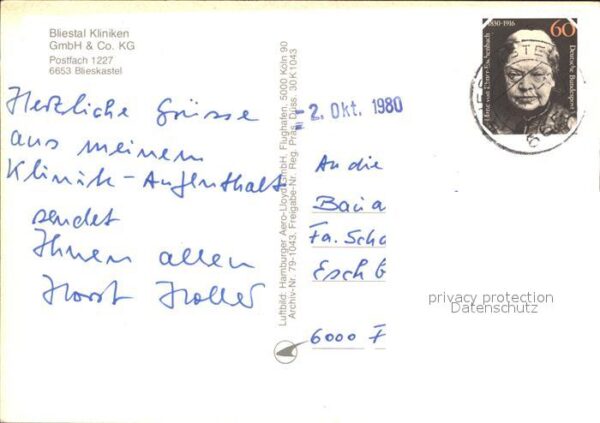 Bliestal Kliniken
GmbH & Co. KG
Postfach 1227
6653 Blieskastel
Herzliche Grüsse
aus meinem
Klinik-Aufenthalt
sendet
Ihnen allen
Horst Holler
Luftbild: Hamburger Aero-Lloyd GmbH, Flughafen, 5000 Köln 90
Archiv-Nr. 79-1043, Freigabe-Nr. Reg. Präs. Düss. 30 K 1043
-2. Okt. 1980
1830-1916
60
Marie von Ebner-Eschenbach
Deutsche Bundespost
An die
Baua
Fa. Scha
Esch b
6000 F
privacy protection
Datenschutz